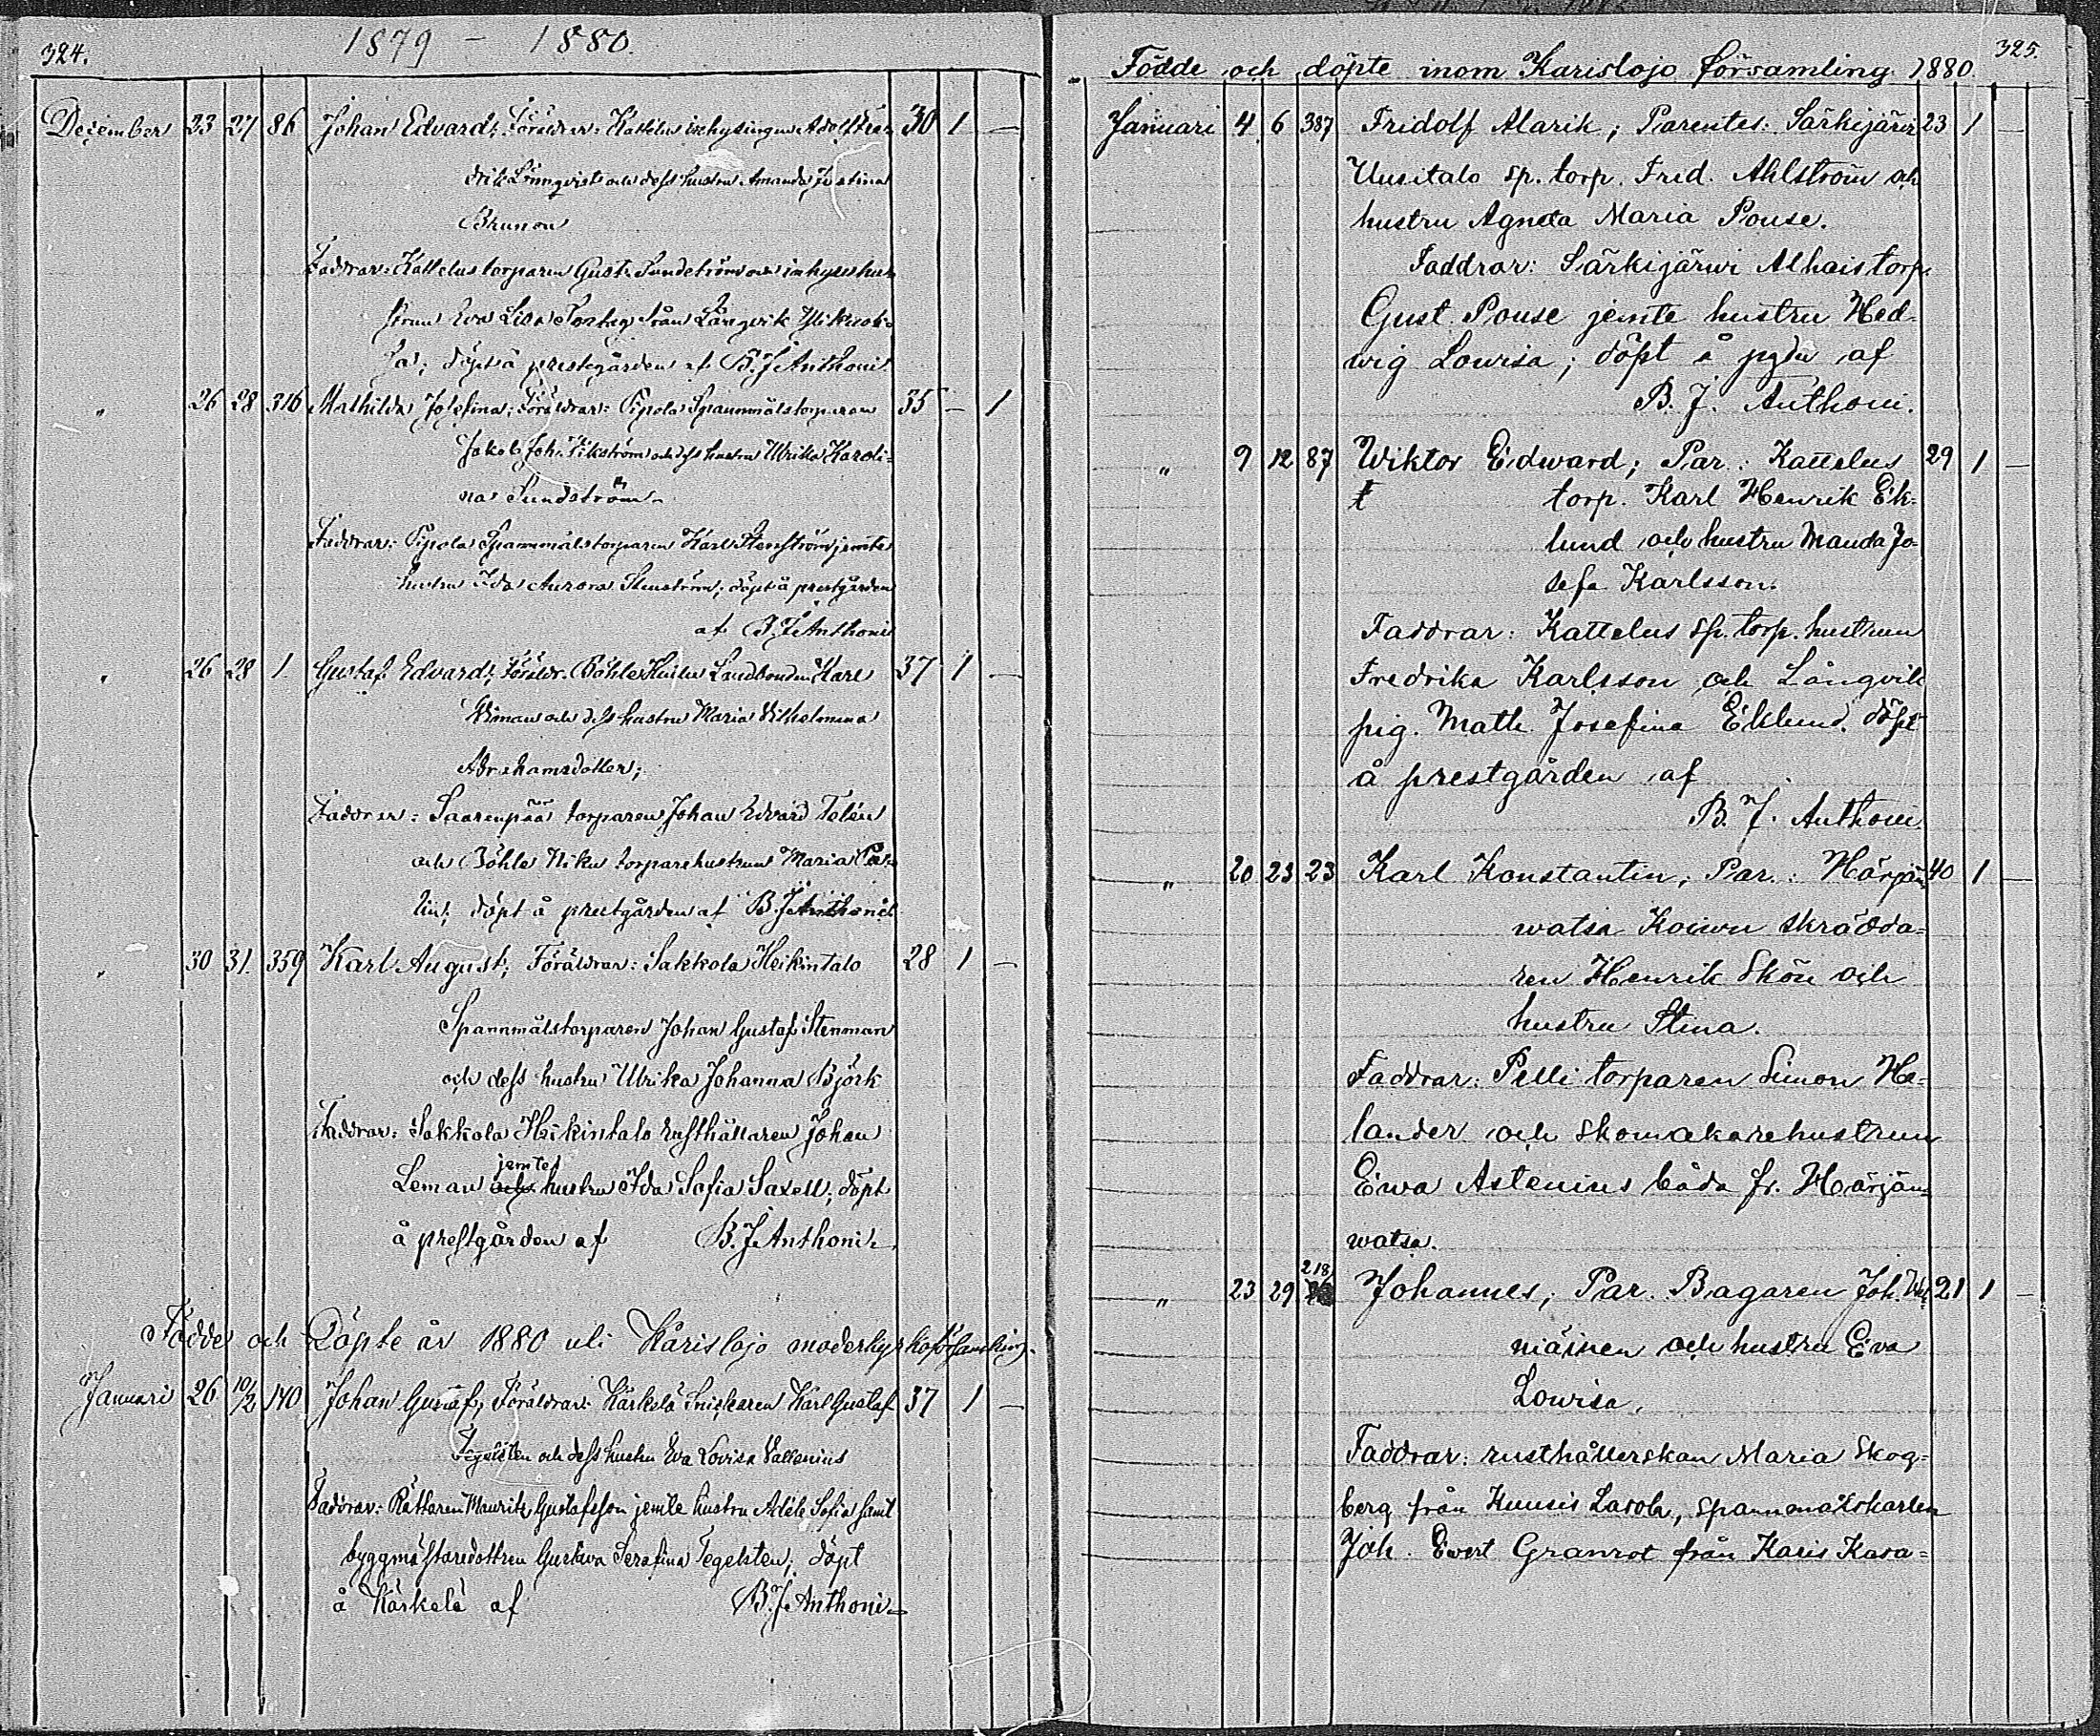 324.
1879 - 1880.
December 23 27 86 Johan Edvard; Föräldrar: Kattelus inhysingen Adolf Fre- 30 1 —
drik Lönnqvist och dess hustru Amanda Justina
Brunou
Faddrar: Kattelus torparen Gust. Sundström och inhyses hu-
strun Eva Lisa från Långvik
döpt å prestgården af B. J. Anthoni
" 26 28 316 Mathilda Josefina; Föräldrar: Pipola Spannmålstorparen 35 — 1
Jakob Joh. Vikström och dess hustru Ulrika Karoli-
na Sundström.
Faddrar: Pipola Spannmålstorparen Karl Stenström jemte
hustru Ida Aurora Stenström; döpt å prestgården
af B. J. Anthoni
" 26 28 1 Gustaf Edvard; Föräldr. Böhle Landbonden Karl 37 1 —
Wiman och dess hustru Maria Vilhelmina
Abrahamsdotter;
Faddrar: Saarenpää torparen Johan Edvard Telén
och Böhle Niku torparehustrun Maria
döpt å prestgården af B. J. Anthoni
" 30 31 359 Karl August; Föräldrar: Sakkola Heikintalo 28 1 —
Spannmålstorparen Johan Gustaf Stenman
och dess hustru Ulrika Johanna Björk
Faddrar: Sakkola Heikintalo rusthållaren Johan
Leman och jemte hustru Ida Sofia Saxell; döpt
å prestgården af B. J. Anthoni
Födde och Döpte år 1880 uti Karislojo moderkyrkoförsamling.
Januari 26 10/2 140 Johan Gustaf; Föräldrar: Kärkelä Snickaren Karl Gustaf 37 1 —
Tegelsten och dess hustru Eva Lovisa Vallenius
Faddrar: Rättaren Maurits Gustafsson jemte hustru Adéle Sofia samt
byggmästaredottren Gustava Serafina Tegelsten; döpt
å Kärkelä af B. J. Anthoni
325.
Födde och döpte inom Karislojo församling 1880.
Januari 4 6 387 Fridolf Alarik; Parentes: Särkijärvi 23 1 —
Uusitalo sp. torp. Fred. Ahlström och
hustru Agneta Maria Pouse.
Faddrar: Särkijärwi Alhais torp.
Gust. Pouse jemte hustru Hed-
wig Lowisa; döpt å pgdn af
B. J. Anthoni.
" 9 12 87 Wiktor Edward; Par.: Kattelus 29 1 —
torp. Karl Henrik Ek-
lund och hustru Manda Jo-
sefa Karlsson.
Faddrar: Kattelus sp. torp. hustrun
Fredrika Karlsson och Långvik
pig. Math. Josefina Eklund. döpt
å prestgården af
B. J. Anthoni.
" 20 23 23 Karl Konstantin; Par.: Härjän- 40 1 —
watsa Koiwu skrädda-
ren Henrik Skön och
hustru Stina.
Faddrar: Pelli torparen Simon He-
lander och skomakarehustrun
Ewa Astenius båda fr. Härjän-
watsa.
" 23 29 218 Johannes; Par. Bagaren Joh. 21 1 —
näinen och hustru Eva
Lowisa.
Faddrar: rusthållerskan Maria Skog-
berg från Kuusis Lavola, spannmålskarlen
Joh. Evert Granrot från Karis Kasa-